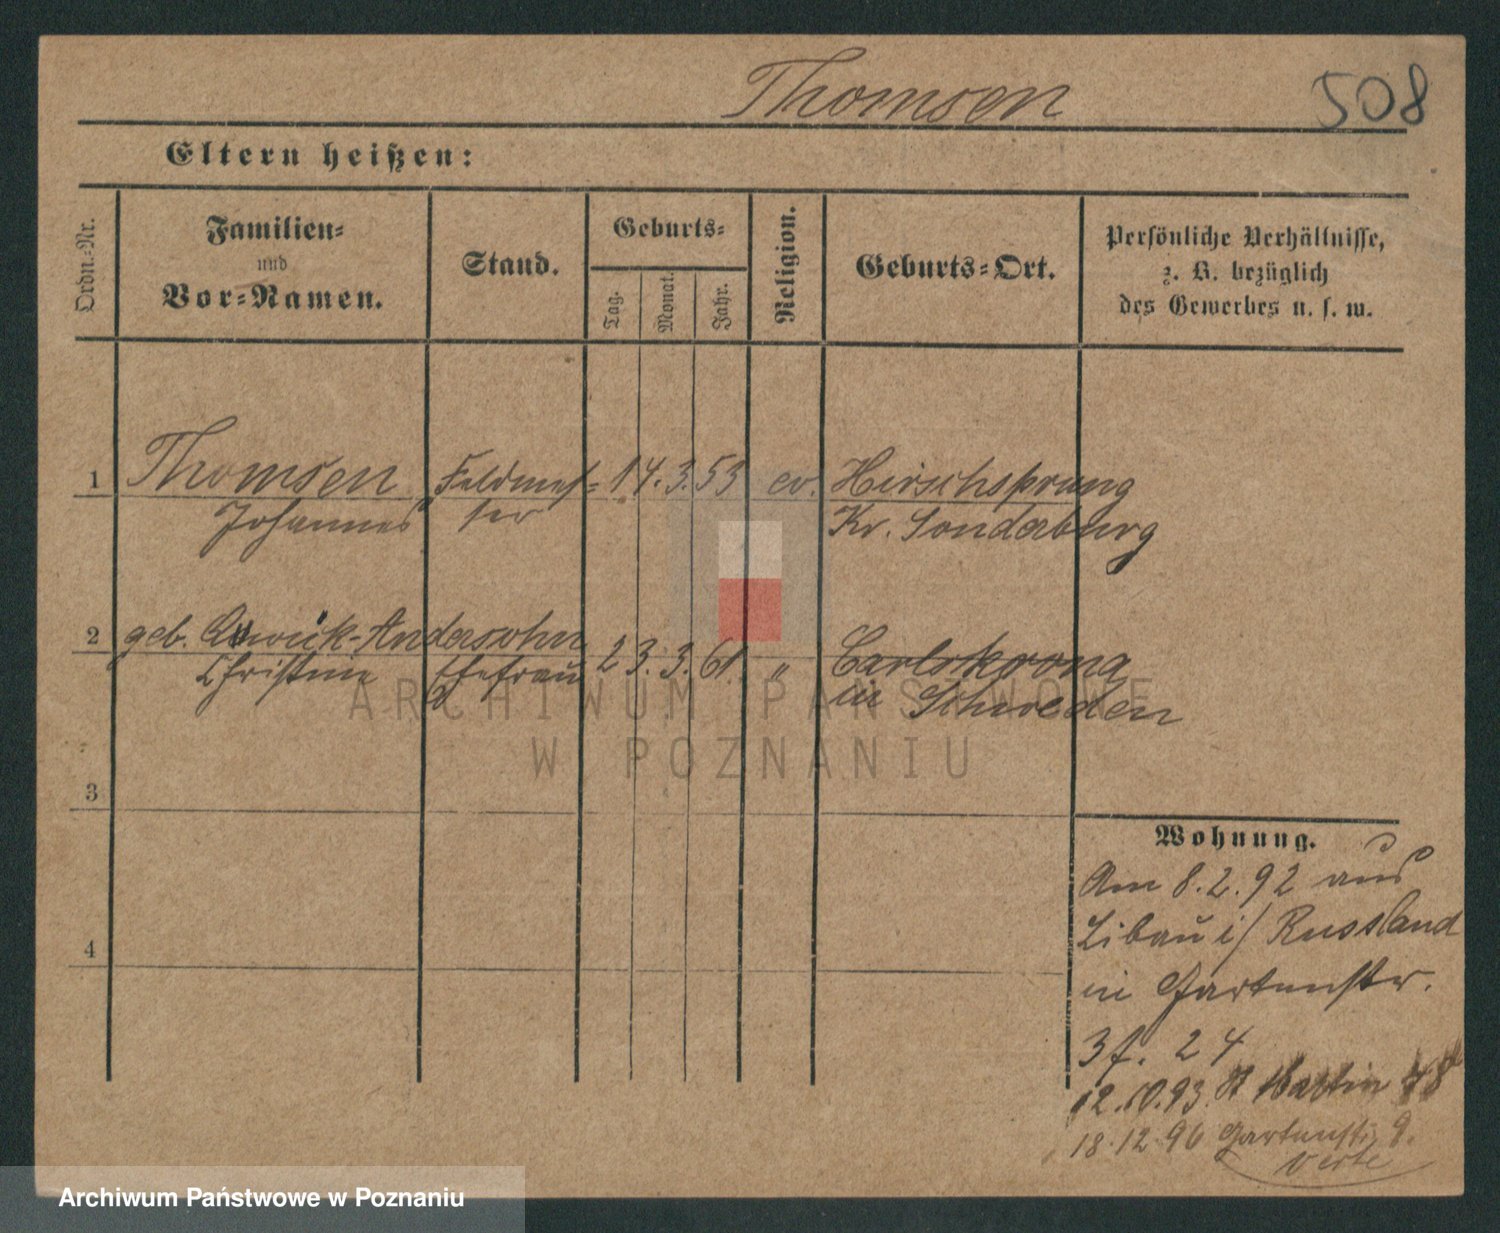 Thomsen 508
Eltern heißen:
Ordn.-Nr.
Familien-
und
Vor-Namen.
Stand.
Geburts-
Tag.
Monat.
Jahr.
Religion.
Geburts-Ort.
Persönliche Verhältnisse,
z. B. bezüglich
des Gewerbes u. s. w.
1 Thomsen Feldmes- 14. 3. 53 ev. Hirschsprung
Johannes ser Kr. Sonderburg
2 geb. -Andersohn 23. 3. 61. " Carlskrona
Christine Ehefrau in Schweden
ARCHIWUM PAŃSTWOWE
W POZNANIU
3
4
Wohnung.
Am 8.2.92 aus
Libau i/ Russland
in Gartenstr.
3 f. 24
12.10.93. St Martin
18.12.96 Gartenstr. 9.
verte
Archiwum Państwowe w Poznaniu